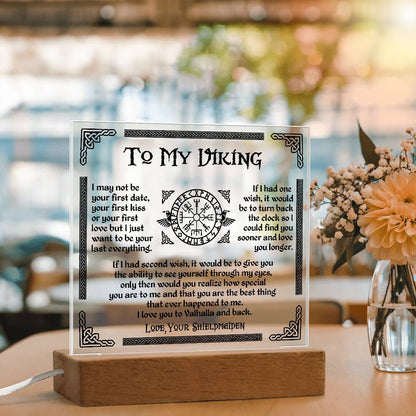 To My Viking
I may not be
your first date,
your first kiss
or your first
love but I just
want to be your
last everything.
If I had one
wish, it would
be to turn back
the clock so I
could find you
sooner and love
you longer.
If I had second wish, it would be to give you
the ability to see yourself through my eyes,
only then would you realize how special
you are to me and that you are the best thing
that ever happened to me.
I love you to Valhalla and back.
Love, Your Shieldmaiden